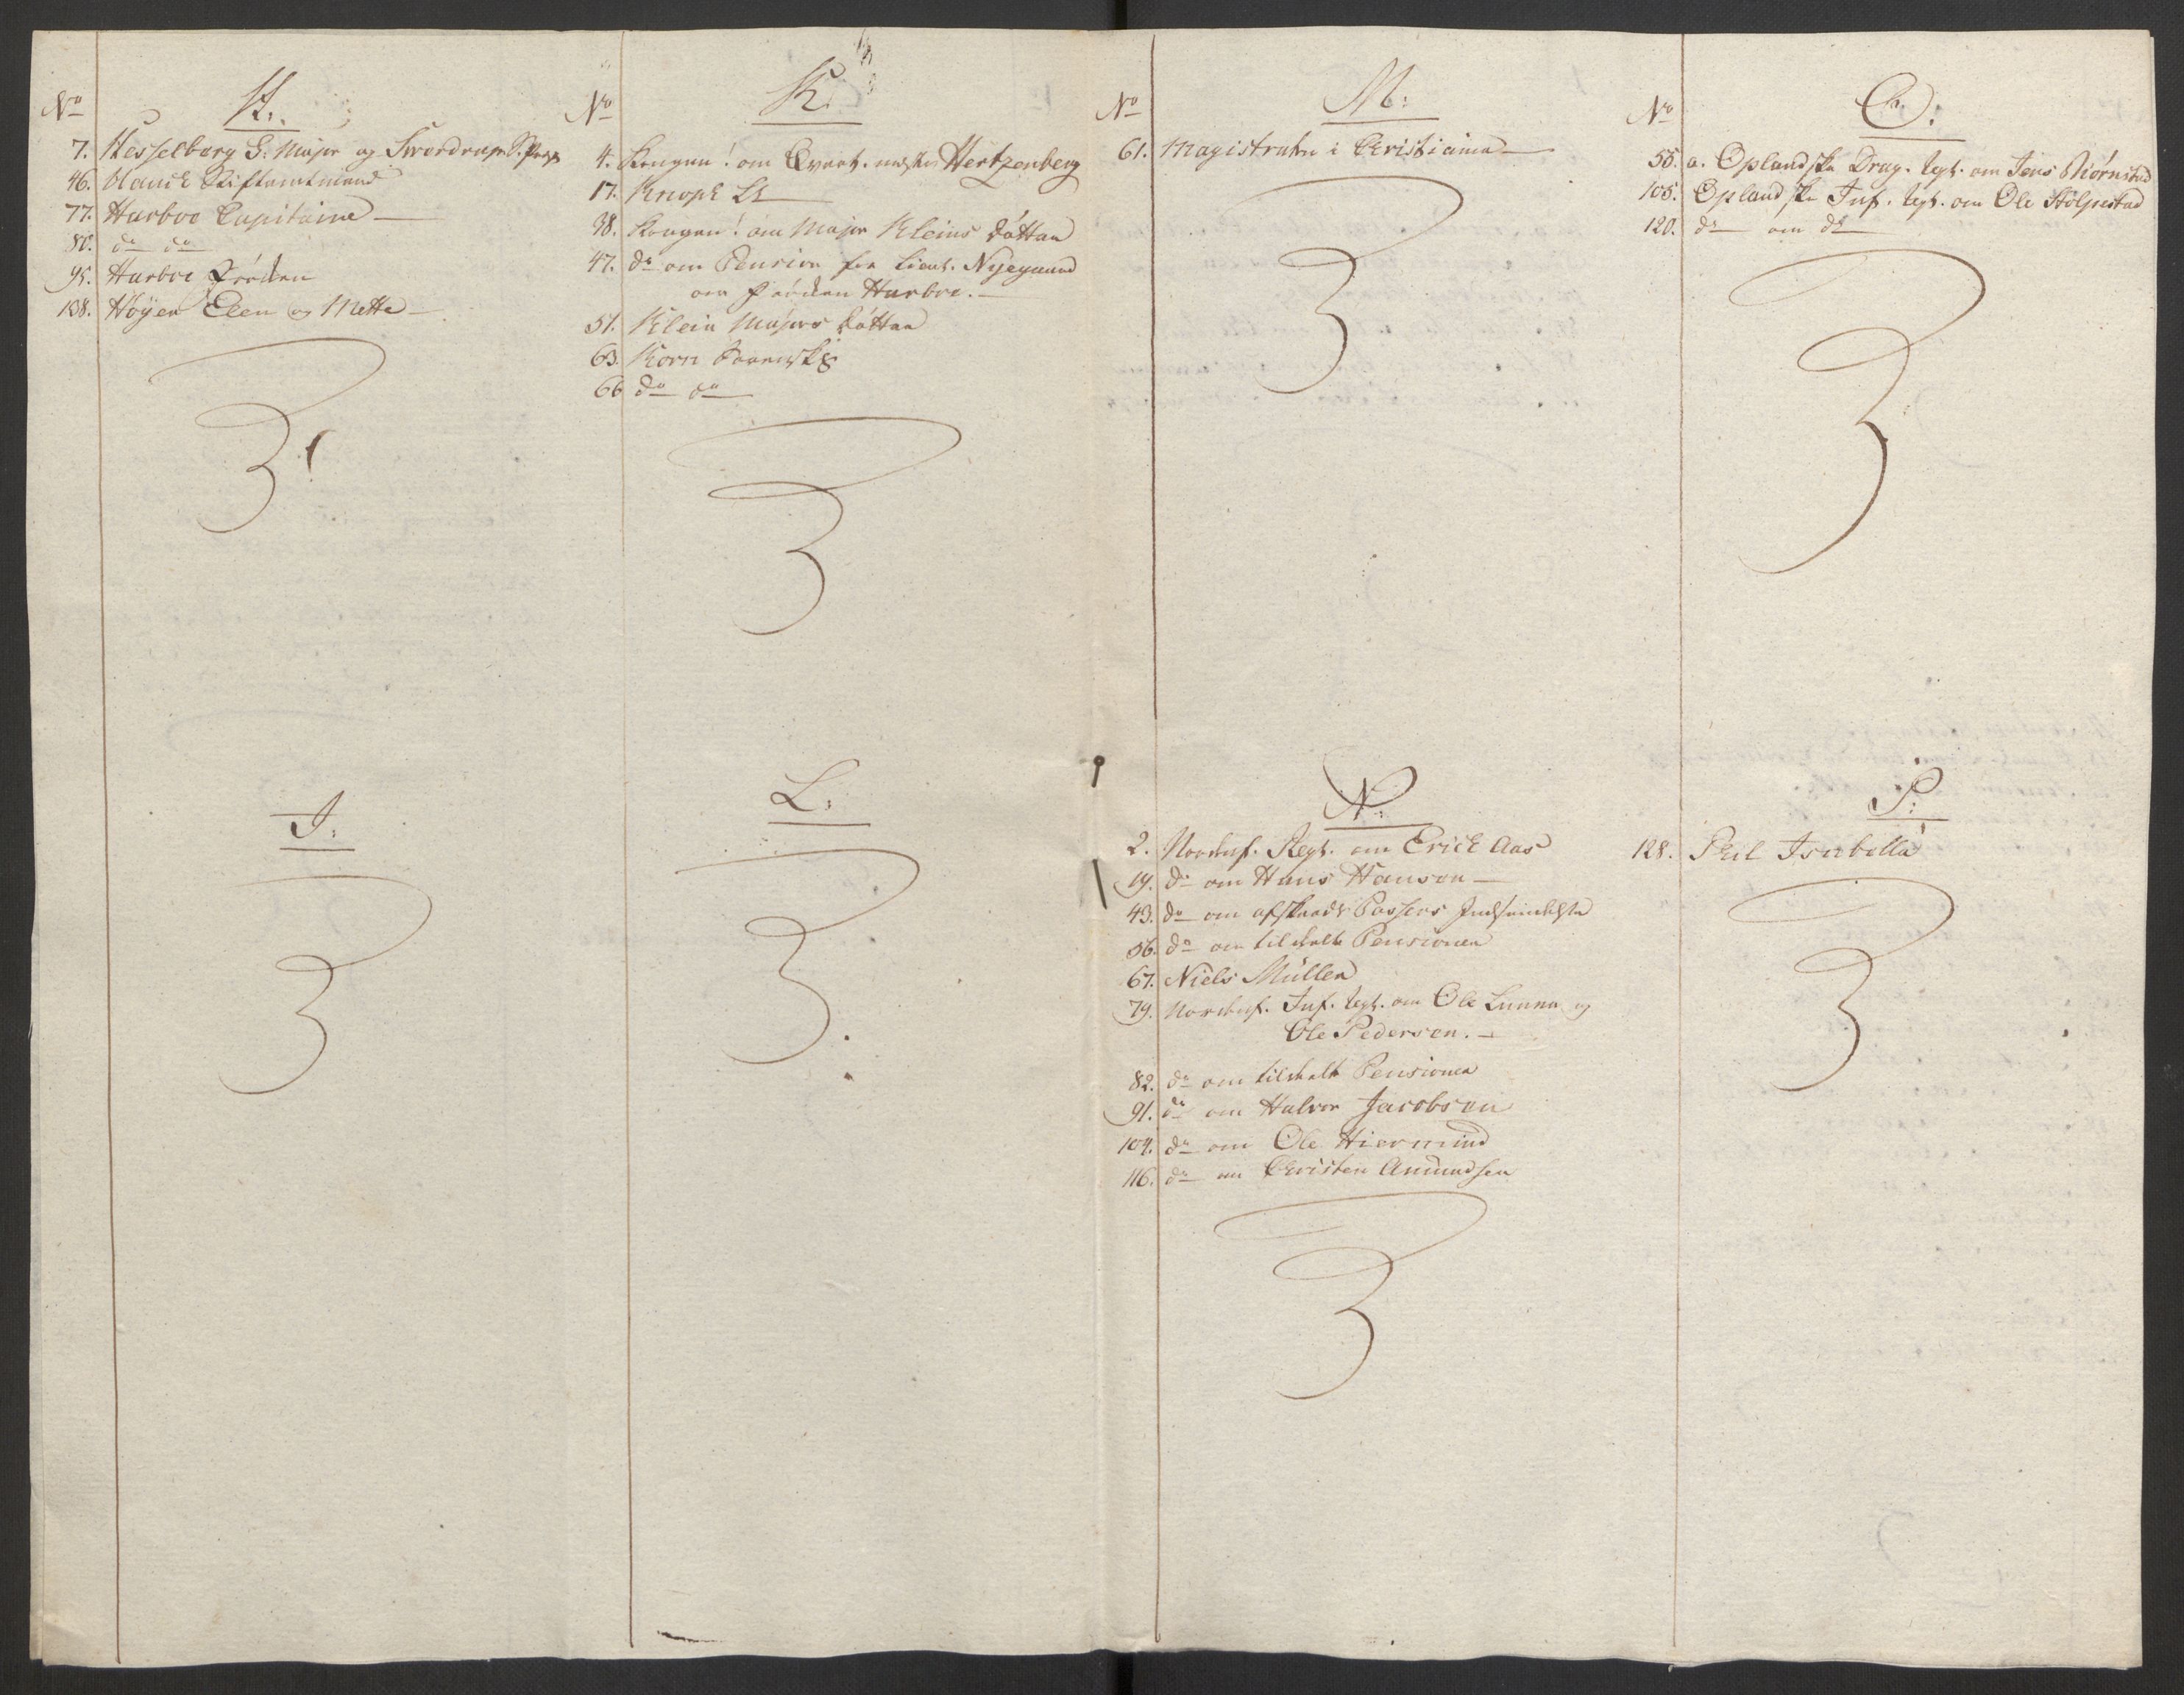 No
H:
7. Hesselberg G: Major og Swordrup S. Præst
46. Hauck Stiftamtmand
77. Harboe Capitaine
80. do do
95. Harboe Frøcken
138. Høyer Elen og Mette
J:
No
K:
4. Kongen! om Qvart. mester Hertzenberg
17. Knoph Lt
38. Kongen! om Major Kleins Døttre
47. do om Pension for Lieut. Nyegaard
om Frøcken Harboe.
51. Klein Majors Døttre
63. Korn
66 do do
L:
No
M:
61. Magistraten i Christiania
N:
2. Nordenf. Regt. om Erick Aas
19. do om Hans Hansen
43. do om afskeeds Passers Indsendelse
56. do om tildeelte Pensioner
67. Niels Müller
79. Nordenf. Inf. Regt. om Ole Lunna og
Ole Pedersen.
82. do om tildeelte Pensioner
91. do om Halvor Jacobsen
104. do om Ole Hiermind
116. do om Christen Amundsen
No
O:
55. a. Oplandske Drag. Regt. om Jens Biørnstad
105. Oplandske Inf. Regt. om Ole Stolpestad
120. do om do
P:
128. Peil Isabella